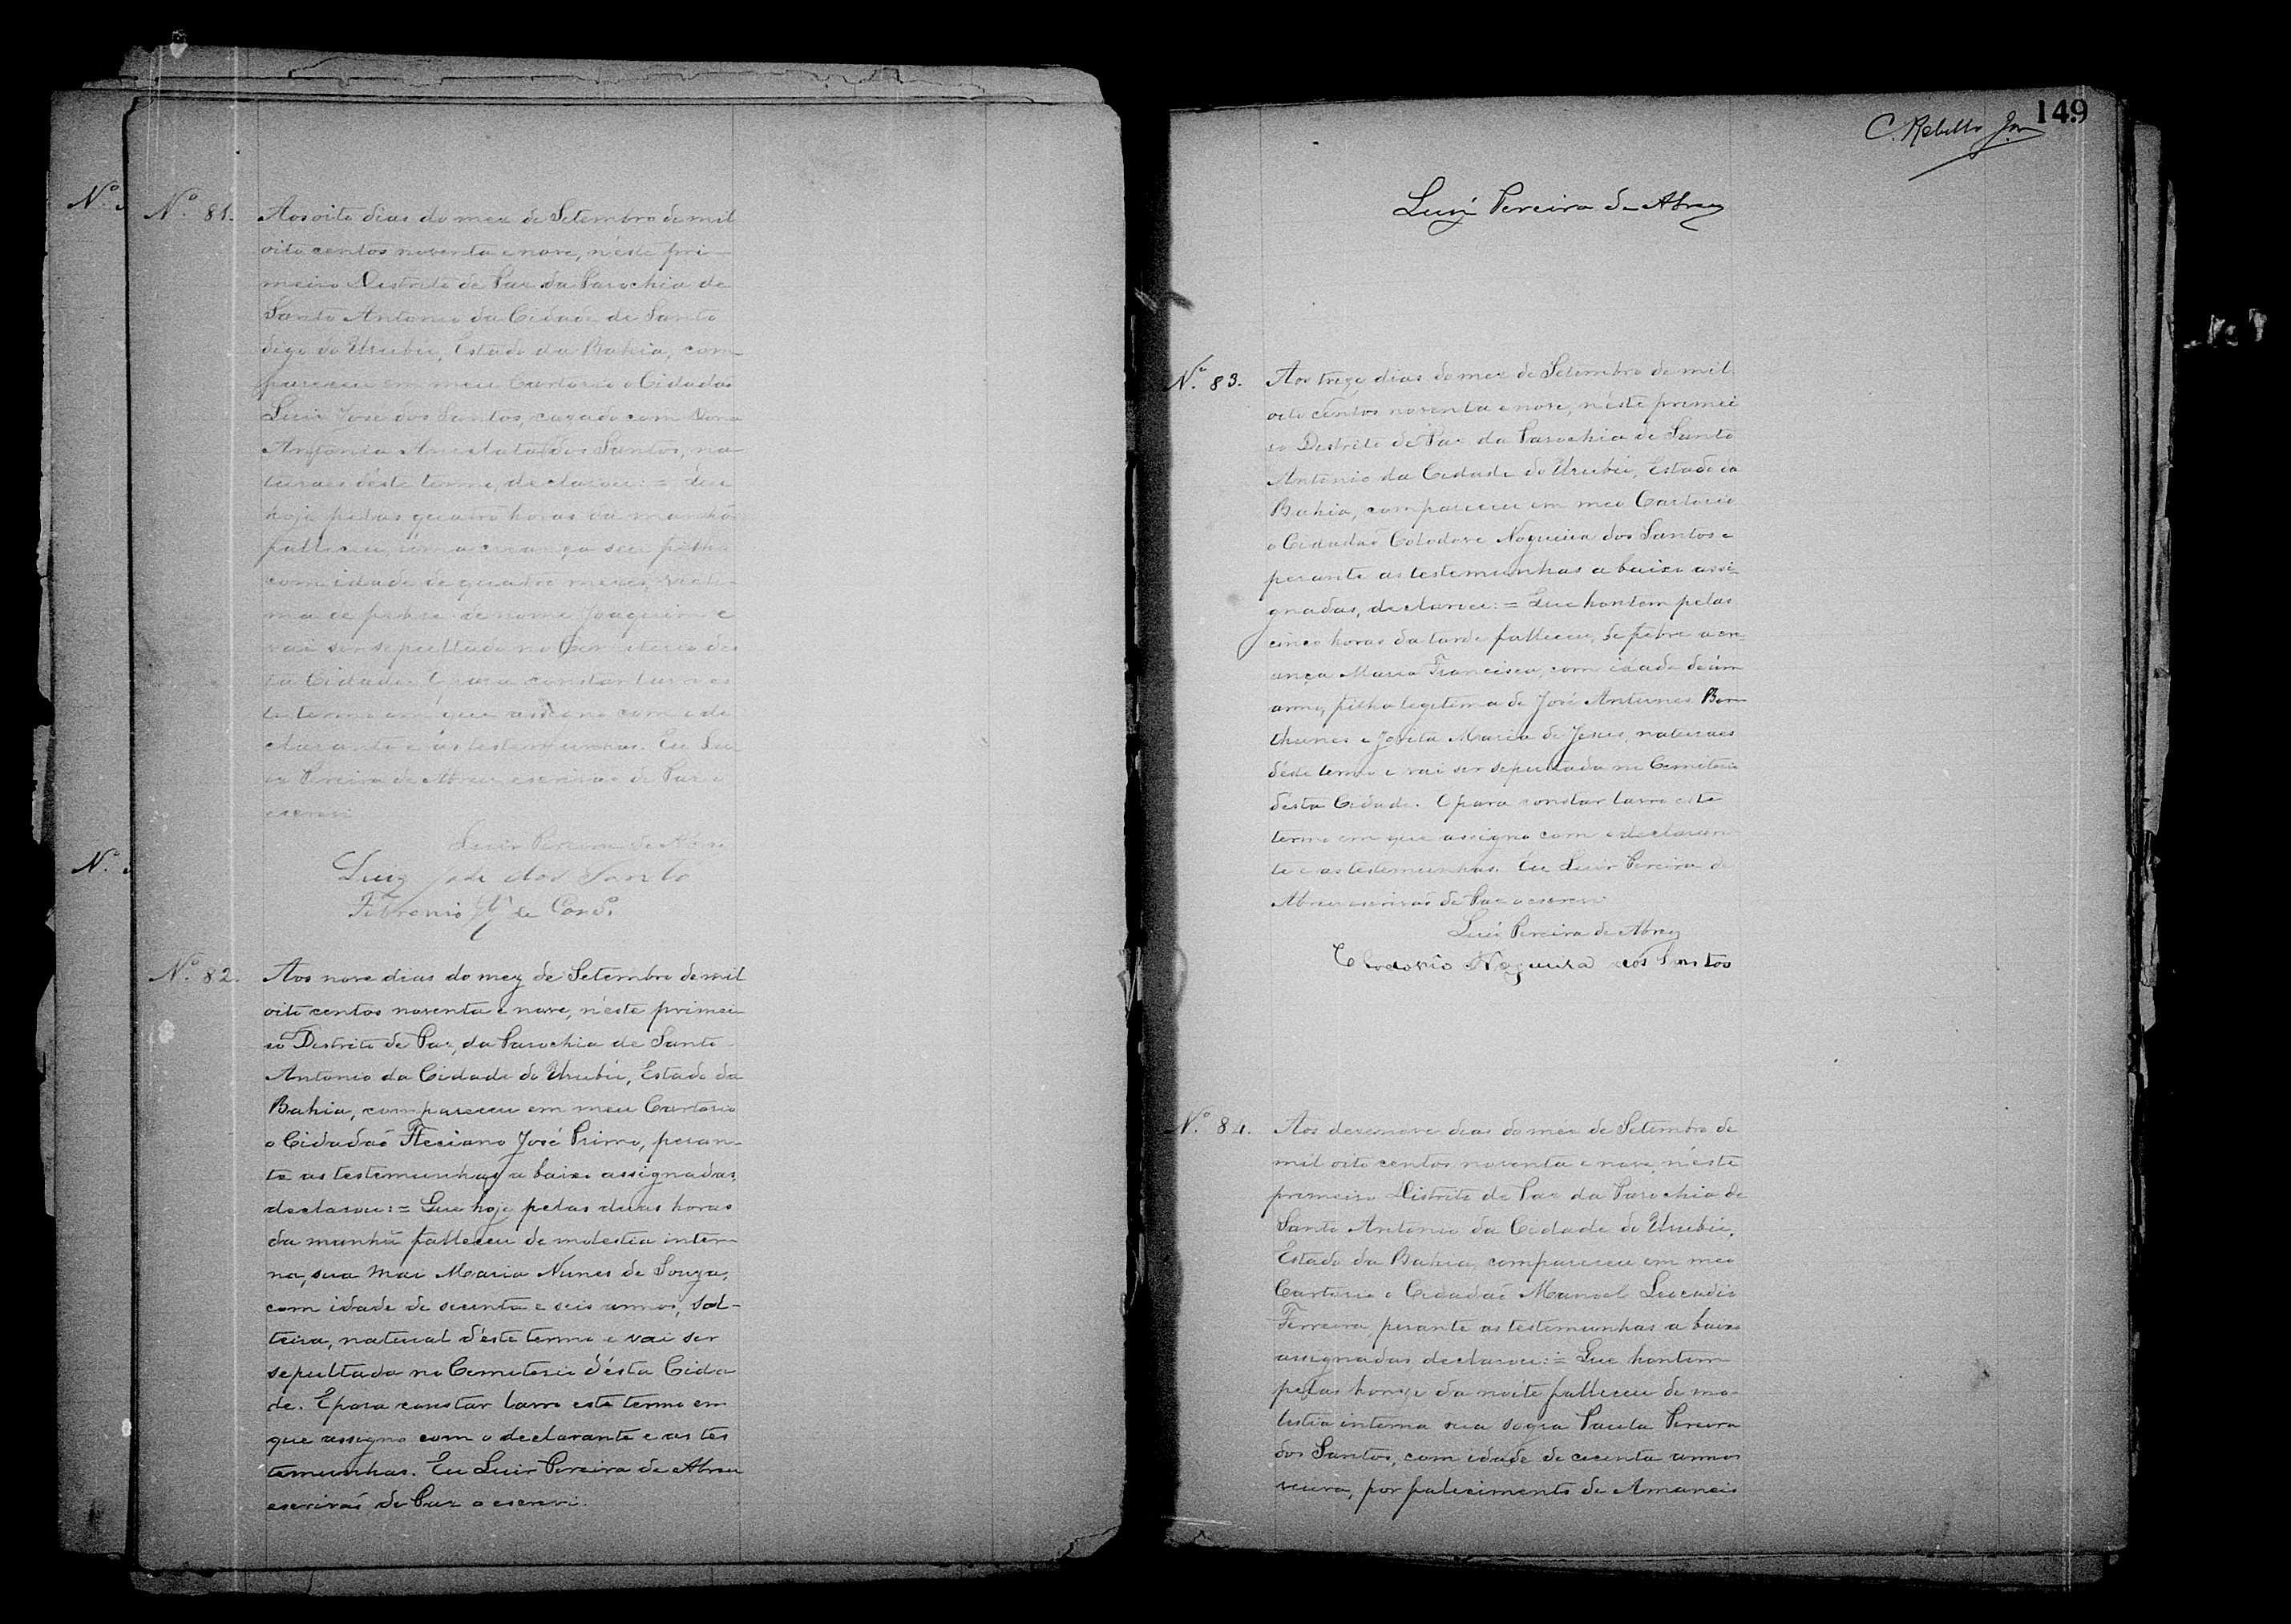 Nº 81.
Aos oito dias do mez de Setembro de mil
oito centos noventa e nove, n'este pri-
meiro Destrito de Paz da Parochia de
Santo Antonio da Cidade de Santo
digo do Urubú, Estado da Bahia, com
pareceu em meu Cartorio o Cidadaõ
Luiz José dos Santos, cazado com Dona
Antonia dos Santos, na
turaes d'este termo, declarou: =
hoje pelas quatro horas da manhã
falleceu, uma criança seu filho
com idade de quatro mezes, victi-
ma de febre de nome Joaquim e
vai ser sepultado no Cemiterio des
ta Cidade. E para constar lavro es
te termo em que assino com o de
clarante e as testemunhas. Eu Lu
iz Pereira de Abreu escrivaõ de Paz o
escrevi.
Luiz Pereira de Abreu
Luiz José dos Santo
Nº 82.
Aos nove dias do mez de Setembro de mil
oito centos noventa e nove, n'este primei
ro Destrito de Paz, da Parochia de Santo
Antonio da Cidade do Urubú, Estado da
Bahia, compareceu em meu Cartorio
o Cidadaõ José Primo, peran-
te as testemunhas a baixo assignadas,
declarou: = Que hoje pelas duas horas
da manhã falleceu de molestia inter-
na, sua Mai Maria Nunes de Souza,
com idade de secenta e seis annos, sol-
teira, natural d'este termo e vai ser
sepultada no Cemiterio d'esta Cida
de. E para constar lavro este termo em
que assigno com o declarante e as tes
temunhas. Eu Luiz Pereira de Abreu
escrivaõ de Paz o escrevi.
149
C. Rebello Jor
Luiz Pereira de Abreu
Nº 83.
Aos treze dias do mez de Setembro de mil
oito centos noventa e nove, n'este primei
ro Destrito de Paz da Parochia de Santo
Antonio da Cidade do Urubú, Estado da
Bahia, compareceu em meo Cartorio
o Cidadaõ Nogueira dos Santos e
perante as testemunhas a baixo assi-
gnadas, declarou: = Que hontem pelas
cinco horas da tarde falleceu, de febre a cri
ança Maria Francisca, com idade de úm
anno, filha legitima de José Antunes Bar
thunes e Jovita Maria de Jesus, naturaes
d'éste termo e vai ser sepultada no Cemiterio
d'ésta Cidade. E para constar lavro este
termo em que assigno com o declaran
te e as testemunhas. Eu Luiz Pereira de
Abreu escrivaõ de Paz o escrevi.
Luiz Pereira de Abreu
Nogueira dos Santos
Nº 84.
Aos dezenove dias do mez de Setembro de
mil oito centos noventa e nove, n'éste
primeiro Distrito de Paz da Parochia de
Santo Antonio da Cidade do Urubú,
Estado da Bahia, compareceu em meo
Cartorio o Cidadaõ Manoel Leocadio
Ferreira, perante as testemunhas a baixo
assignadas declarou: = Que hontem
pelas honze da noite falleceu de mo-
lestia interna sua sogra Paula Pereira
dos Santos, com idade de cecenta annos
viuva, por falecimento de Amancio